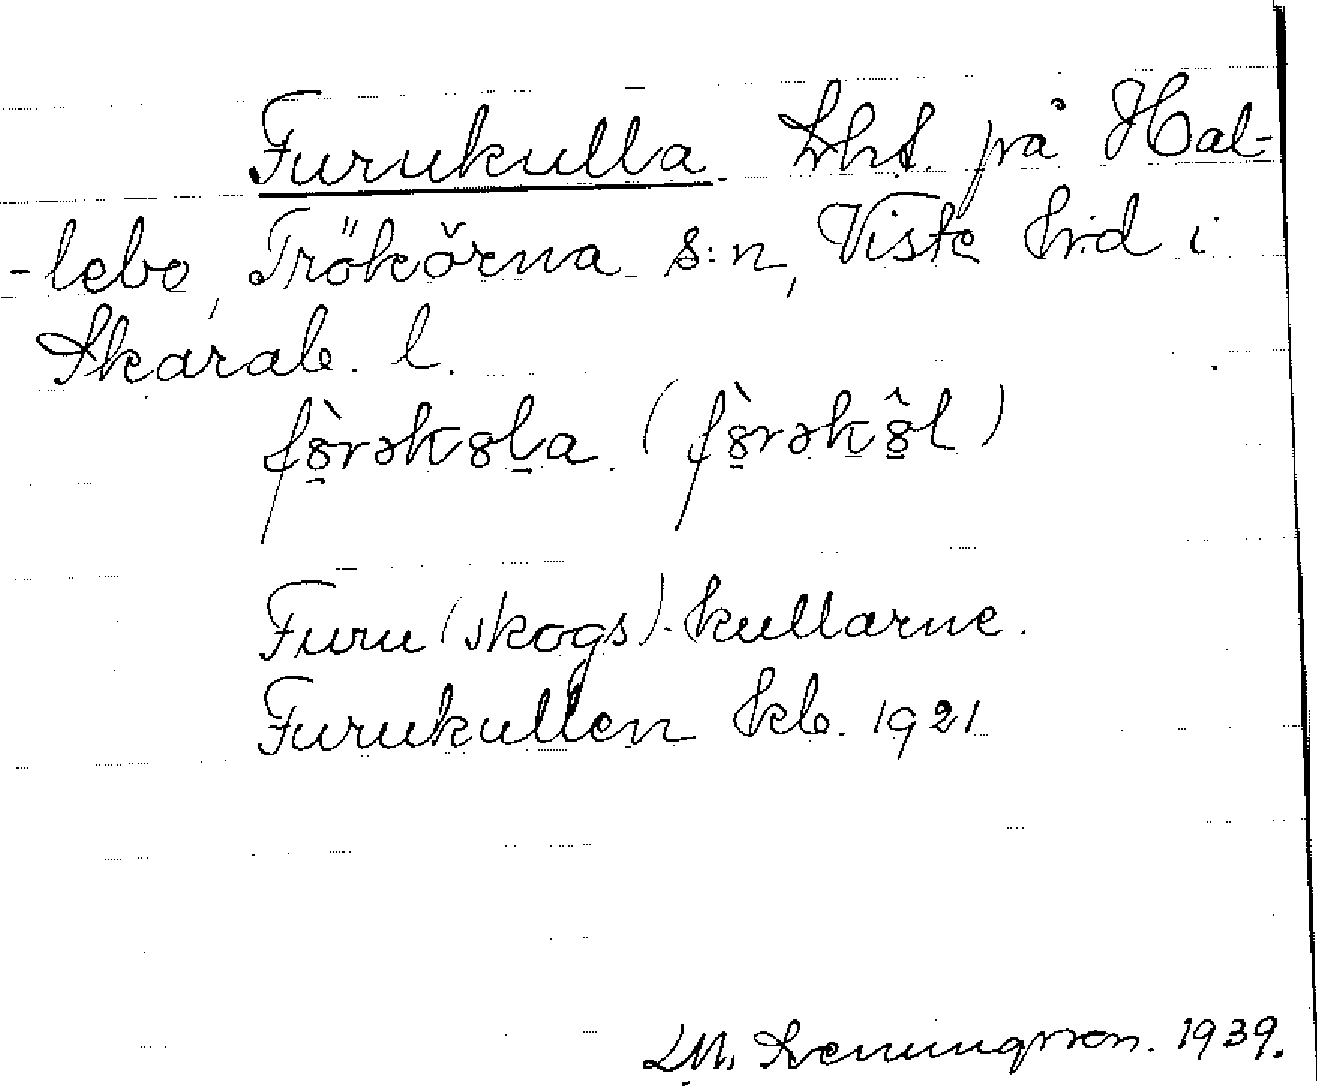 Furukulla. Lht. på Hal=
-lebo, Trökörna s:n, Viste hrd i
Skarab. l.
fò̱rəko̱ḻa. (fò̱rəkô̱l)
Furu(skogs)-kullarne.
Furukullen kb. 1921
1939.